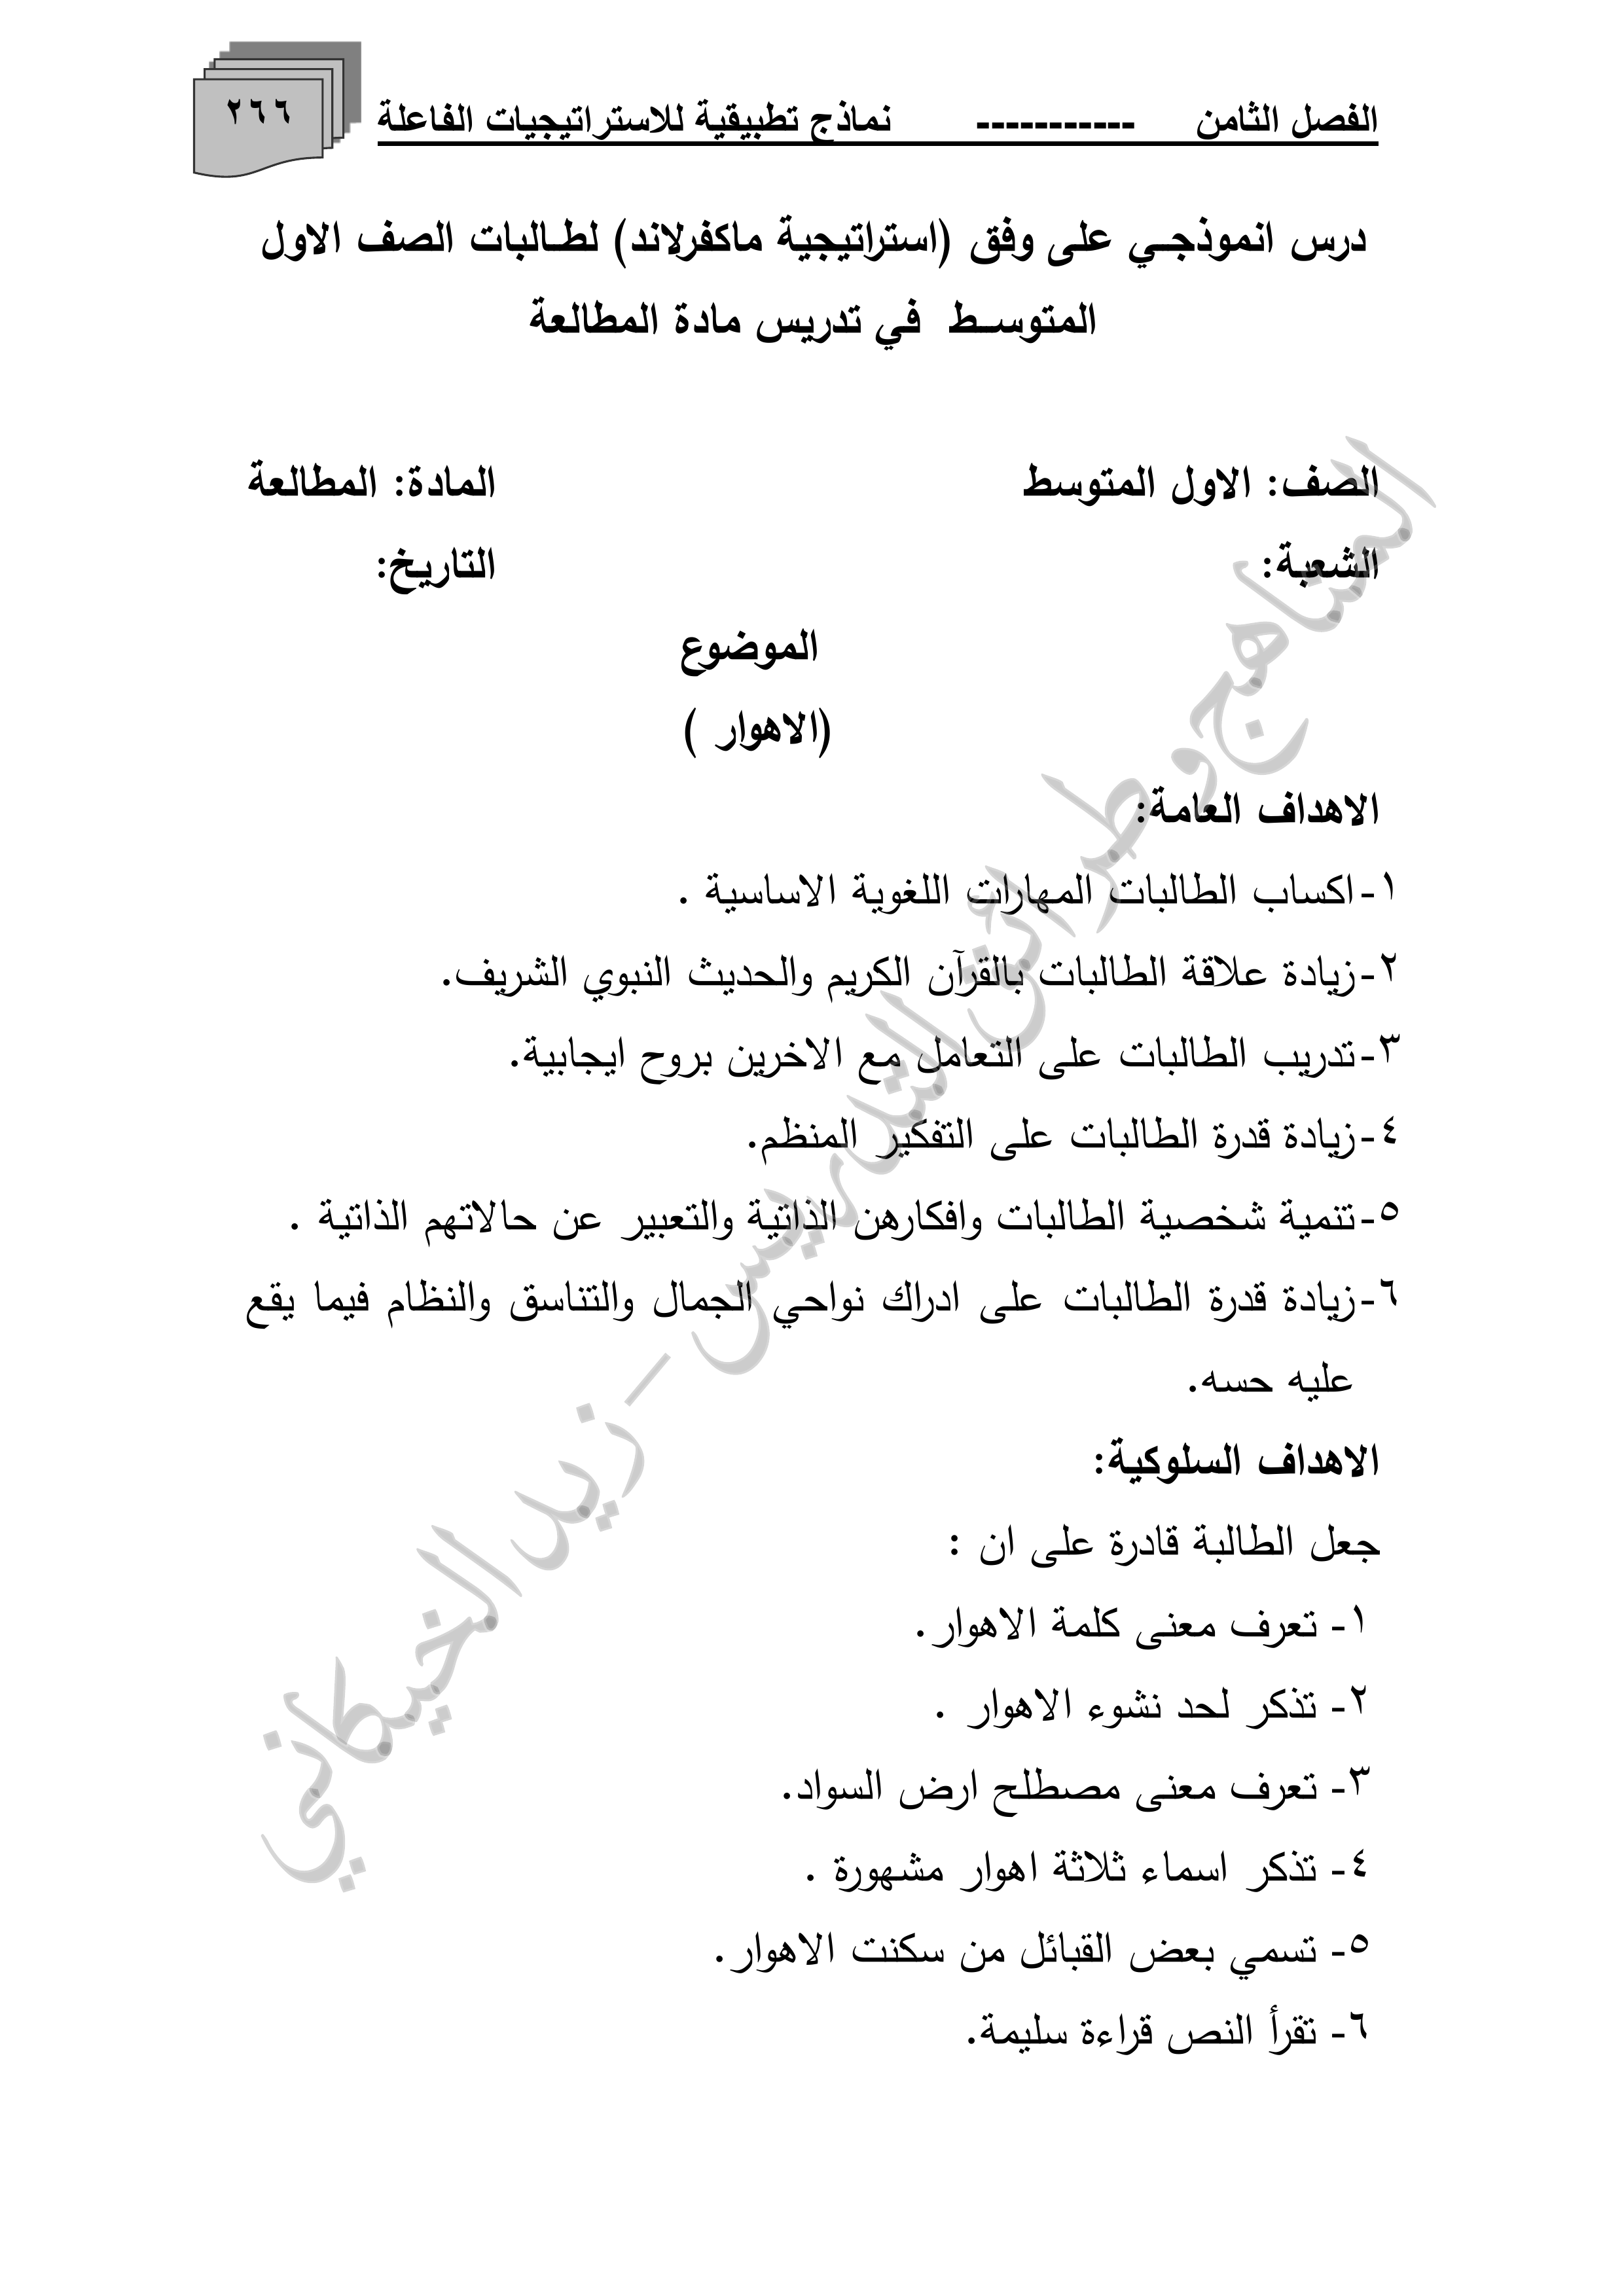 الفصل الثامن ----------- نماذج تطبيقية للاستراتيجيات الفاعلة
٢٦٦
درس انموذجي على وفق (استراتيجية ماكفرلاند) لطالبات الصف الاول
المتوسط في تدريس مادة المطالعة
الصف: الاول المتوسط المادة: المطالعة
الشعبة: التاريخ:
الموضوع
(الاهوار )
الاهداف العامة:
١-اكساب الطالبات المهارات اللغوية الاساسية .
٢-زيادة علاقة الطالبات بالقرآن الكريم والحديث النبوي الشريف.
٣-تدريب الطالبات على التعامل مع الاخرين بروح ايجابية.
٤-زيادة قدرة الطالبات على التفكير المنظم.
٥-تنمية شخصية الطالبات وافكارهن الذاتية والتعبير عن حالاتهم الذاتية .
٦-زيادة قدرة الطالبات على ادراك نواحي الجمال والتناسق والنظام فيما يقع
عليه حسه.
الاهداف السلوكية:
جعل الطالبة قادرة على ان :
١- تعرف معنى كلمة الاهوار.
٢- تذكر لحد نشوء الاهوار .
٣- تعرف معنى مصطلح ارض السواد.
٤- تذكر اسماء ثلاثة اهوار مشهورة .
٥- تسمي بعض القبائل من سكنت الاهوار.
٦- تقرأ النص قراءة سليمة.
المناهج وطرائق التدريس - زيد الخيكاني